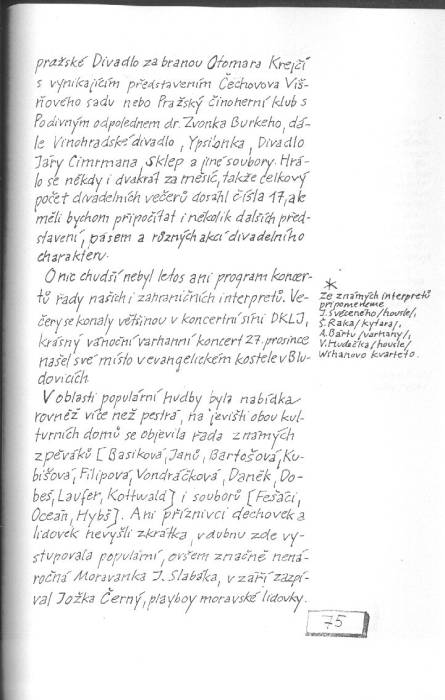 pražské Divadlo za branou Otomara Krejčí
s vynikajícím představením Čechovova Viš-
ňového sadu nebo Pražský činoherní klub s
Podivným odpolednem dr. Zvonka Burkeho, dá-
le Vinohradské divadlo, Ypsilonka, Divadlo
Járy Cimrmana, Sklep a jiné soubory. Hrá-
lo se někdy i dvakrát za měsíc, takže celkový
počet divadelních večerů dosáhl čísla 17, ale
měli bychom připočítat i několik dalších před-
stavení, pásem a různých akcí divadelního
charakteru.
O nic chudší nebyl letos ani program koncer-
tů řady našich i zahraničních interpretů. Ve-
čery se konaly většinou v koncertní síni DKLJ,
krásný vánoční varhanní koncert 27. prosince
našel své místo v evangelickém kostele v Blu-
dovicích.
V oblasti populární hudby byla nabídka
rovněž více než pestrá, na jevišti obou kul-
turních domů se objevila řada známých
zpěváků [Basiková, Janů, Bartošová, Ku-
bišová, Filipová, Vondráčková, Daněk, Do-
beš, Laufer, Kottwald] i souborů [Fešáci,
Oceán, Hybš]. Ani příznivci dechovek a
lidovek nevyšli zkrátka, v dubnu zde vy-
stupovala populární, ovšem značně nená-
ročná Moravanka J. Slabáka, v září zazpí-
val Jožka Černý, playboy moravské lidovky.
*
Ze známých interpretů
připomeňme
J. Svěceného /housle/,
Š. Raka /kytara/,
A. Bártu /varhany/,
V. Hudečka /housle/
Wihanovo kvarteto.
75